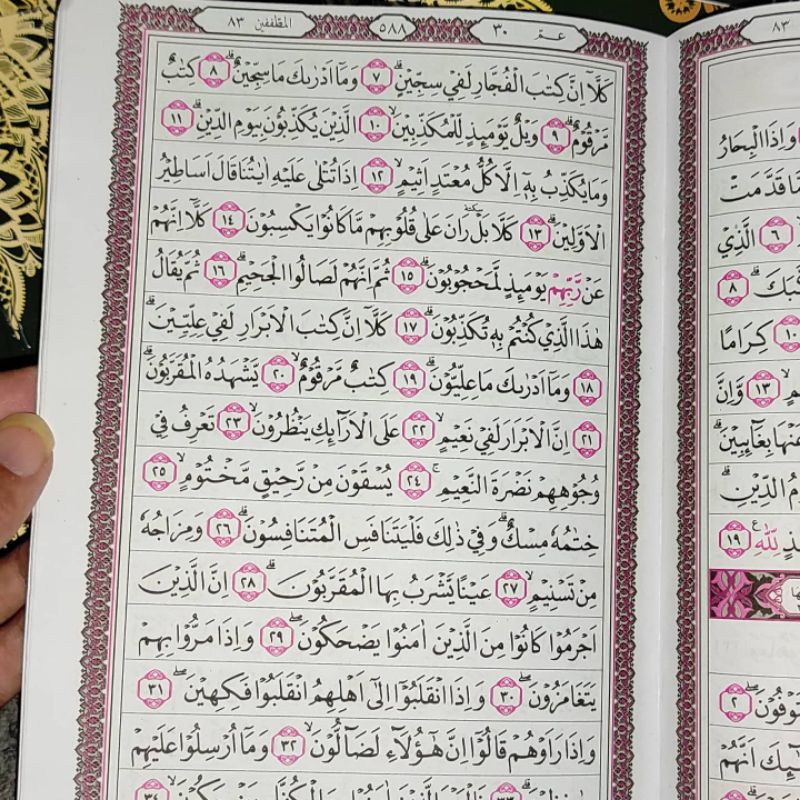 المطففين ٨٣ ٥٨٨ عم ٣٠
كَلَّآ اِنَّ كِتٰبَ الْفُجَّارِ لَفِيْ سِجِّيْنٍۗ ٧ وَمَآ اَدْرٰىكَ مَا سِجِّيْنٌۗ ٨ كِتٰبٌ
مَّرْقُوْمٌۗ ٩ وَيْلٌ يَّوْمَىِٕذٍ لِّلْمُكَذِّبِيْنَۙ ١٠ الَّذِيْنَ يُكَذِّبُوْنَ بِيَوْمِ الدِّيْنِۗ ١١
وَمَا يُكَذِّبُ بِهٖٓ اِلَّا كُلُّ مُعْتَدٍ اَثِيْمٍۙ ١٢ اِذَا تُتْلٰى عَلَيْهِ اٰيٰتُنَا قَالَ اَسَاطِيْرُ
الْاَوَّلِيْنَۗ ١٣ كَلَّا بَلْ رَانَ عَلٰى قُلُوْبِهِمْ مَّا كَانُوْا يَكْسِبُوْنَ ١٤ كَلَّآ اِنَّهُمْ
عَنْ رَّبِّهِمْ يَوْمَىِٕذٍ لَّمَحْجُوْبُوْنَۗ ١٥ ثُمَّ اِنَّهُمْ لَصَالُوا الْجَحِيْمِۗ ١٦ ثُمَّ يُقَالُ
هٰذَا الَّذِيْ كُنْتُمْ بِهٖ تُكَذِّبُوْنَۗ ١٧ كَلَّآ اِنَّ كِتٰبَ الْاَبْرَارِ لَفِيْ عِلِّيِّيْنَۗ
١٨ وَمَآ اَدْرٰىكَ مَا عِلِّيُّوْنَۗ ١٩ كِتٰبٌ مَّرْقُوْمٌۙ ٢٠ يَّشْهَدُهُ الْمُقَرَّبُوْنَۗ
٢١ اِنَّ الْاَبْرَارَ لَفِيْ نَعِيْمٍۙ ٢٢ عَلَى الْاَرَاۤىِٕكِ يَنْظُرُوْنَۙ ٢٣ تَعْرِفُ فِيْ
وُجُوْهِهِمْ نَضْرَةَ النَّعِيْمِۚ ٢٤ يُسْقَوْنَ مِنْ رَّحِيْقٍ مَّخْتُوْمٍۙ ٢٥
خِتٰمُهٗ مِسْكٌۗ وَفِيْ ذٰلِكَ فَلْيَتَنَافَسِ الْمُتَنَافِسُوْنَۗ ٢٦ وَمِزَاجُهٗ
مِنْ تَسْنِيْمٍۙ ٢٧ عَيْنًا يَّشْرَبُ بِهَا الْمُقَرَّبُوْنَۗ ٢٨ اِنَّ الَّذِيْنَ
اَجْرَمُوْا كَانُوْا مِنَ الَّذِيْنَ اٰمَنُوْا يَضْحَكُوْنَۖ ٢٩ وَاِذَا مَرُّوْا بِهِمْ
يَتَغَامَزُوْنَۖ ٣٠ وَاِذَا انْقَلَبُوْٓا اِلٰٓى اَهْلِهِمُ انْقَلَبُوْا فَكِهِيْنَۖ ٣١
وَاِذَا رَاَوْهُمْ قَالُوْٓا اِنَّ هٰٓؤُلَاۤءِ لَضَاۤلُّوْنَۙ ٣٢ وَمَآ اُرْسِلُوْا عَلَيْهِمْ
٨٣
وَاِذَا الْبِحَارُ
مَّا قَدَّمَتْ
٦ الَّذِيْ
٨
١٠ كِرَامًا
١٣ وَاِنَّ
عَنْهَا بِغَاۤىِٕبِيْنَۗ
الدِّيْنِۙ
لِّلّٰهِ ١٩
٢
اَنَّهُمْ